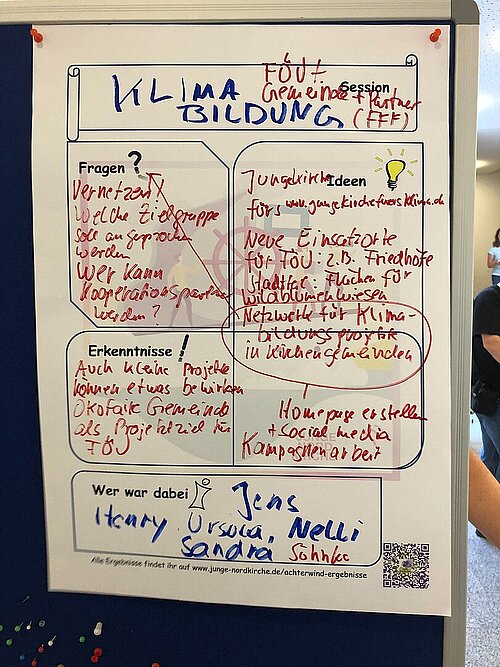 FÖJ +
Session
KLIMA Gemeinde + Partner
BILDUNG (FFF)
Fragen ?
Vernetzen
Welche Zielgruppe
soll angesprochen
werden
Wer kann
Kooperationspartner
werden?
Ideen
Jungekirche
fürs www.jungekirchefuersklima.de
Neue Einsatzorte
für FÖJ: z.B. Friedhöfe
Stadttac: Flächen für
Wildblumenwiesen
Netzwerke für Klima-
bildungsprojekte
in Kirchengemeinden
Erkenntnisse !
Auch kleine Projekte
können etwas bewirken
Ökofaire Gemeinde
als Projektziel für
FÖJ
Homepage erstellen
+ social media
Kampagnenarbeit
Wer war dabei
Jens
Henry, Ursula, Nelli
Sandra Söhnke
Alle Ergebnisse findet Ihr auf www.junge-nordkirche.de/achterwind-ergebnisse